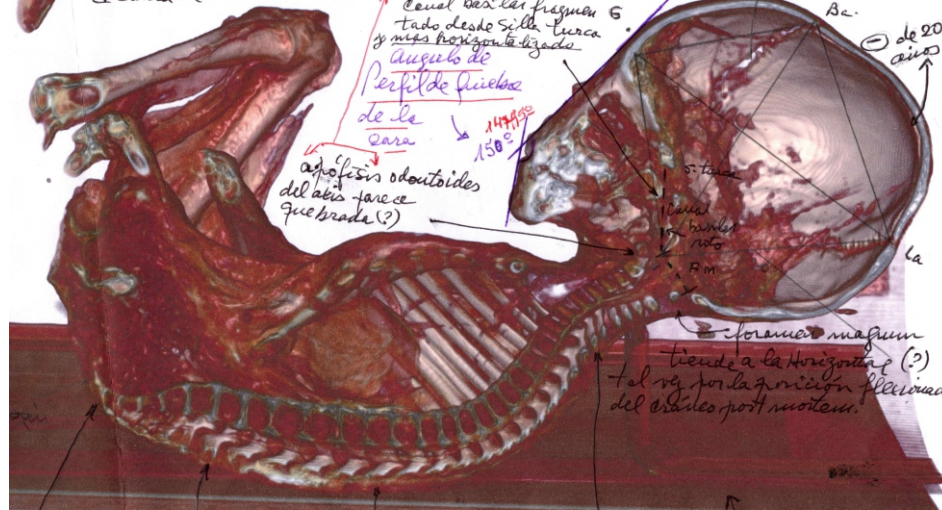 Canal basilar fragmen
tado desde Silla turca
y mas horizontalizado
angulo de
Perfil de
de la
cara
147,95º
150º
apófisis odontoides
del atis parece
quebrada (?)
Ba.
de 20
años
S. turca
Canal
basilar
roto
La
foramen magnum
tiende a la Horizontal (?)
tal vez por la posición flexionada
del cráneo post mortem.